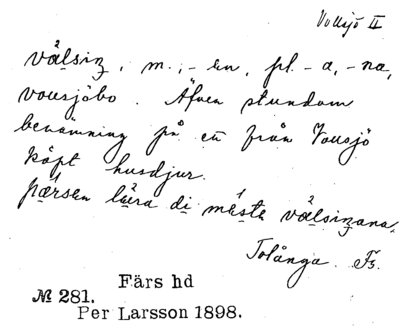 Vollsjö II
välsing, m., -en, pl. -a, -na,
vousjöbo. Äfven stundom
benämning på ett från Vousjö
köpt husdjur.
pärsen lära di mäste välsingana.
Tolånga. Fs.
Färs hd
№ 281.
Per Larsson 1898.